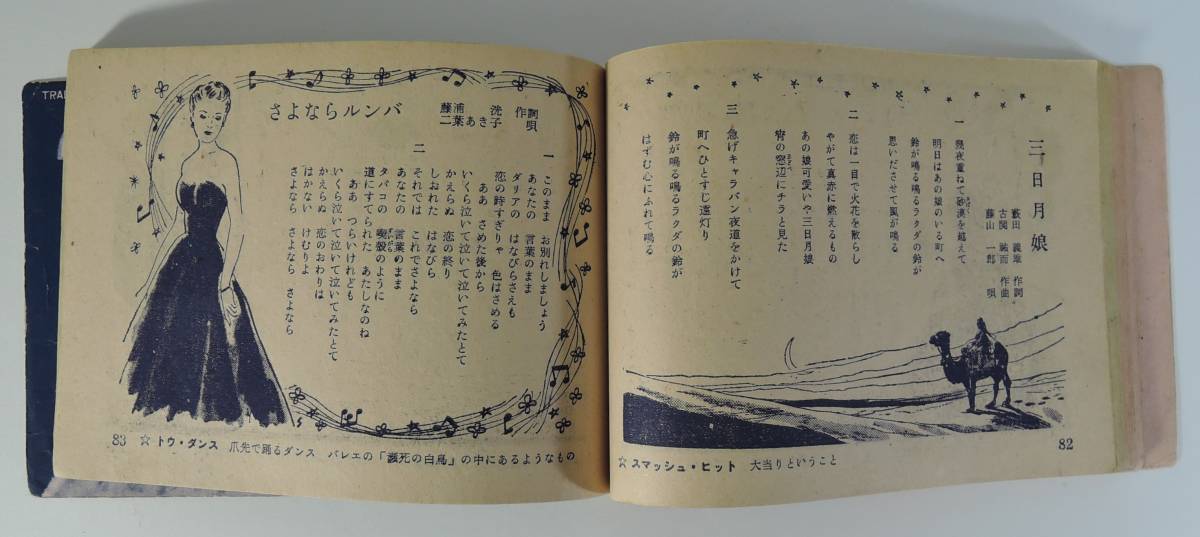 三日月娘
藪田 義雄 作詞
古関 裕而 作曲
藤山 一郎 唄
一
幾夜重ねて砂漠を越えて
明日はあの娘のいる町へ
鈴が鳴る鳴るラクダの鈴が
思いださせて風が鳴る
二
恋は一目で火花を散らし
やがて真赤に燃えるもの
あの娘可愛いや三日月娘
宵の窓辺にチラと見た
三
急げキャラバン夜道をかけて
町へひとすじ遠灯り
鈴が鳴る鳴るラクダの鈴が
はずむ心にふれて鳴る
82
☆スマッシュ・ヒット 大当りということ
さよならルンバ
藤浦 洸 作詞
二葉あき子 唄
一
このまま お別れしましょう
あなたの 言葉のまま
ダリアの はなびらさえも
恋の時すぎりゃ 色はさめる
ああ さめた後から
いくら泣いて泣いて泣いてみたとて
かえらぬ 恋の終り
しおれた はなびら
二
それでは これでさよなら
あなたの 言葉のまま
タバコの 喫殻のように
道にすてられた あたしなのね
ああ つらいけれども
いくら泣いて泣いて泣いてみたとて
かえらぬ 恋のおわりは
はかない けむりよ
さよなら さよなら さよなら
83
☆トウ・ダンス 爪先で踊るダンス バレエの「瀕死の白鳥」の中にあるようなもの
TRA